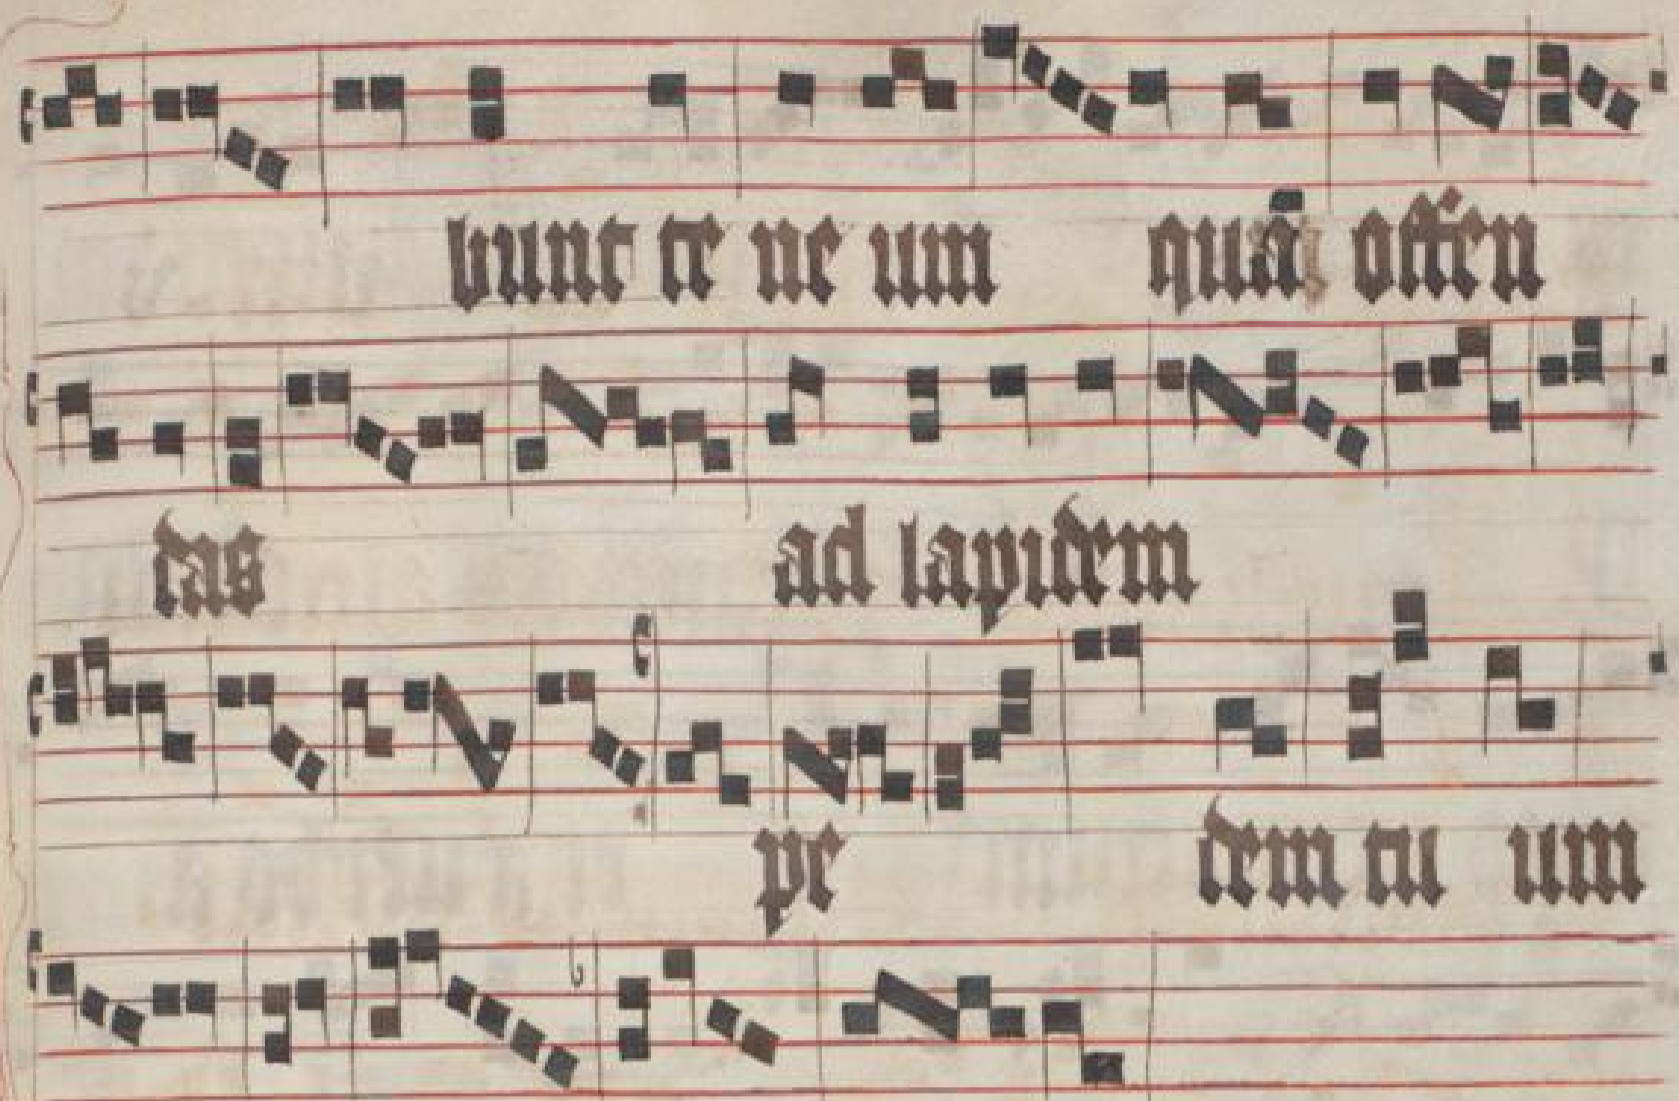 bunt te ne um quā offen
das ad lapidem
pe dem tu um